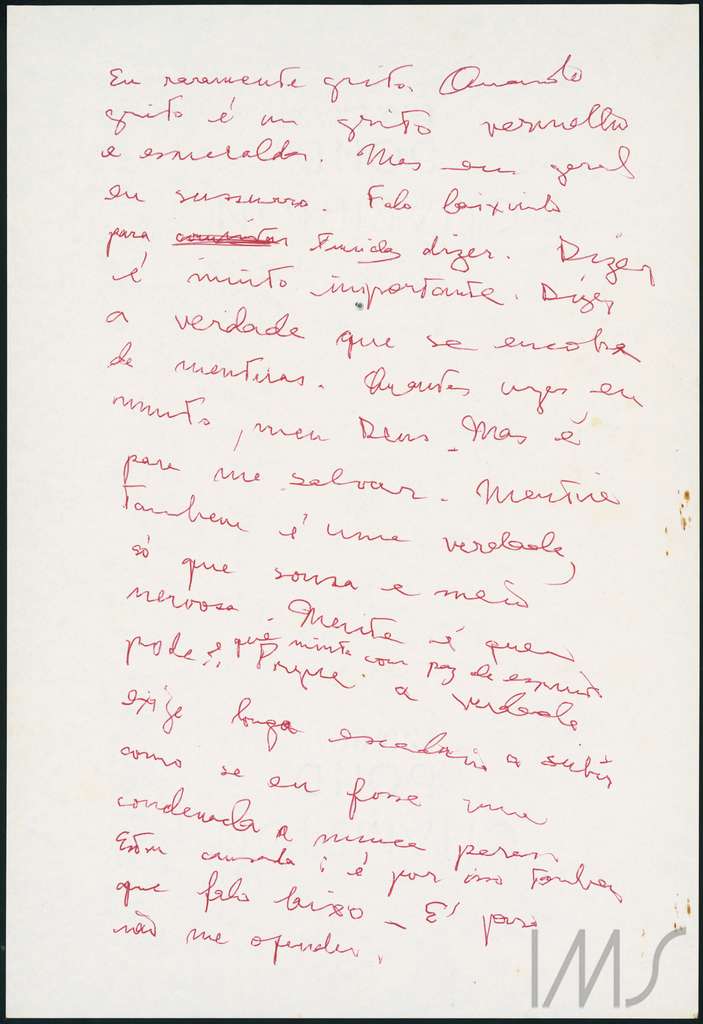 Eu raramente grito. Quando
grito é um grito vermelho
e esmeralda. Mas em geral
eu sussurro. Falo baixinho
para dizer. Dizer
é muito importante. Dizer
a verdade que se encobre
de mentiras. Quantas vezes eu
minto, meu Deus. Mas é
para me salvar. Mentira
também é uma verdade,
só que sonsa e meio
nervosa. Minta é quem
pode, e que minta com paz de espírito
Porque a verdade
exige longa escadaria a subir
como se eu fosse uma
condenada a nunca parar.
Estou cansada; é por isso também
que falo baixo – É para
não me ofender.
IMS